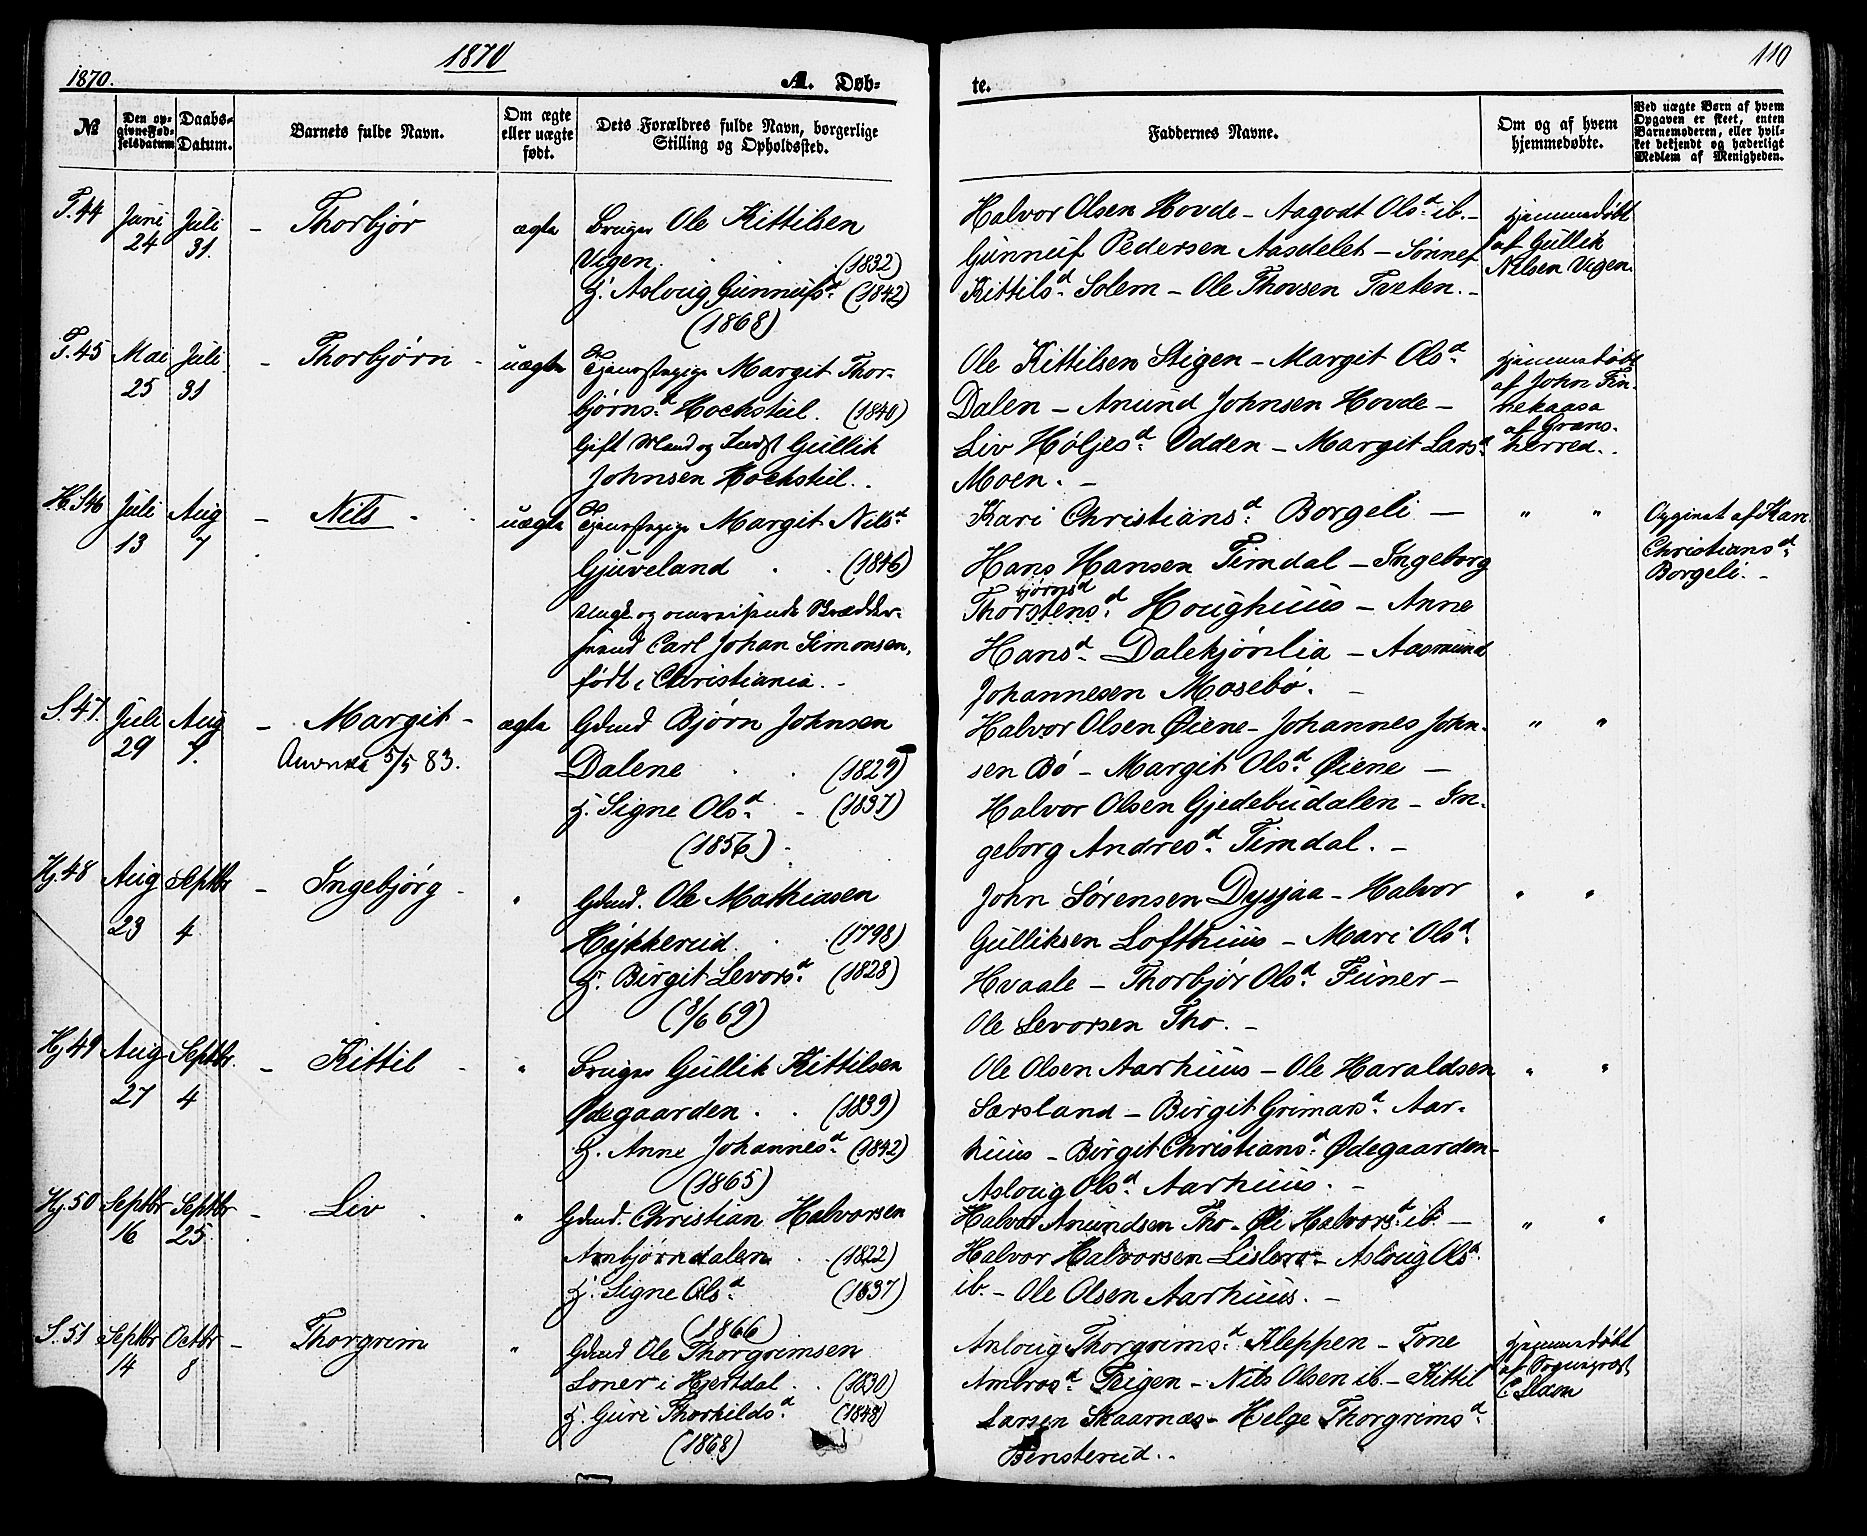 1870
110
1870.
A. Døb-
te.
№
Den op-
givne Fød-
selsdatum
Daabs-
Datum.
Barnets fulde Navn.
Om ægte
eller uægte
født.
Dets Forældres fulde Navn, borgerlige
Stilling og Opholdssted.
Faddernes Navne.
Om og af hvem
hjemmedøbte.
Ved uægte Børn af hvem
Opgaven er skeet, enten
Barnemoderen, eller hvil-
ket bekjendt og hæderligt
Medlem af Menigheden.
T. 44
Juni
24
Juli
31.
- Thorbjør
ægte
Bruger Ole Kittilsen
Vigen. (1832)
H. Asloug Gunnufsd. (1842)
(1868)
Halvor Olsen Hovde - Aagodt Olsd. ib. -
Gunnuf Pedersen Aasdelet - Sønnef
Kittilsd. Solem - Ole Thovsen Tveten. -
hjemmedøbt
af Gullik
Nilsen Vigen.
T. 45
Mai
25
Juli
31
- Thorbjørn -
uægte
Tjenestepige Margit Thor-
bjørnsd. Hoekstul. (1840)
Gift Mand og Gullik
Johnsen Hoekstul. .
Ole Kittilsen Stigen - Margit Olsd.
Dalen - Anund Johnsen Hovde -
Liv Høljesd. Odden - Margit Larsd.
Moen. -
hjemmedøbt
af John Fin-
nekaasa
af Grans-
herred. .
H. S 46
Juli
13
Aug
7
- Nils -
uægte
Tjenestepige Margit Nilsd.
Gjuveland (1846)
Ungk. og omreisende
Carl Johan Simonsen,
født i Christiania. -
Kari Christiansd. Borgeli -
Hans Hansen Timdal - Ingeborg
bjørnsd
Thorstensd. Houghuus - Anne
Hansd. Dalekjønlia - Aasmund
Johannesen Mosebø. -
" "
Opgivet af Kari
Christiansd.
Borgeli. -
S. 47.
Juli
29
Aug
7.
- Margit -
5/5 83.
ægte
Gdmd Bjørn Johnsen
Dalene (1829)
H. Signe Olsd. - (1837)
(1856). -
Halvor Olsen Øiene - Johannes John-
sen Bø - Margit Olsd. Øiene -
Halvor Olsen Gjedebudalen - In-
geborg Andresd. Timdal. -
" "
Hj. 48
Aug
23
Septbr
4
- Ingebjørg -
"
Gdmd. Ole Mathiasen
Hykkerud. (1798)
H. Birgit Levorsd. (1828)
(8/6 69)
John Sørensen Dysjaa - Halvor
Gulliksen Lofthuus - Mari Olsd.
Hvaale - Thorbjør Olsd. Funer -
Ole Levorsen Tho. -
" "
Hj. 49
Aug
27
Septbr.
4
- Kittil -
"
Bruger Gullik Kittilsen
Ødegaarden. . (1839)
H. Anne Johannesd. (1842)
(1865)
Ole Olsen Aarhuus - Ole Haraldsen
Særsland - Birgit Grimarsd. Aar-
huus - Birgit Christiansd. Ødegaarden -
Asloug Olsd. Aarhuus. -
" "
Hj. 50
Septbr
16
Septbr
25.
- Liv
"
Gdmd. Christian Halvorsen
Ambjørndalen . (1822)
H. Signe Olsd. (1837)
(1866)
Halvor Anundsen Tho - Øli Halvorsd. ib. -
Halvor Halvorsen Lislero - Aslaug Olsd.
ib. - Ole Olsen Aarhuus. -
" "
S. 51
Septbr
14
Octbr
8
- Thorgrim
"
Gdmd Ole Thorgrimsen
Loner i Hjertdal . . (1830)
H. Guri Thorkildsd. (1848)
(1868)
Anloug Thorgrimsd. Kleppen - Tone
Ambrosd. Teigen - Nils Olsen ib. - Kittil
Larsen Skaarnæs - Helge Thorgrimsd.
Bensterud. .
hjemmedøbt
af Sognepræst